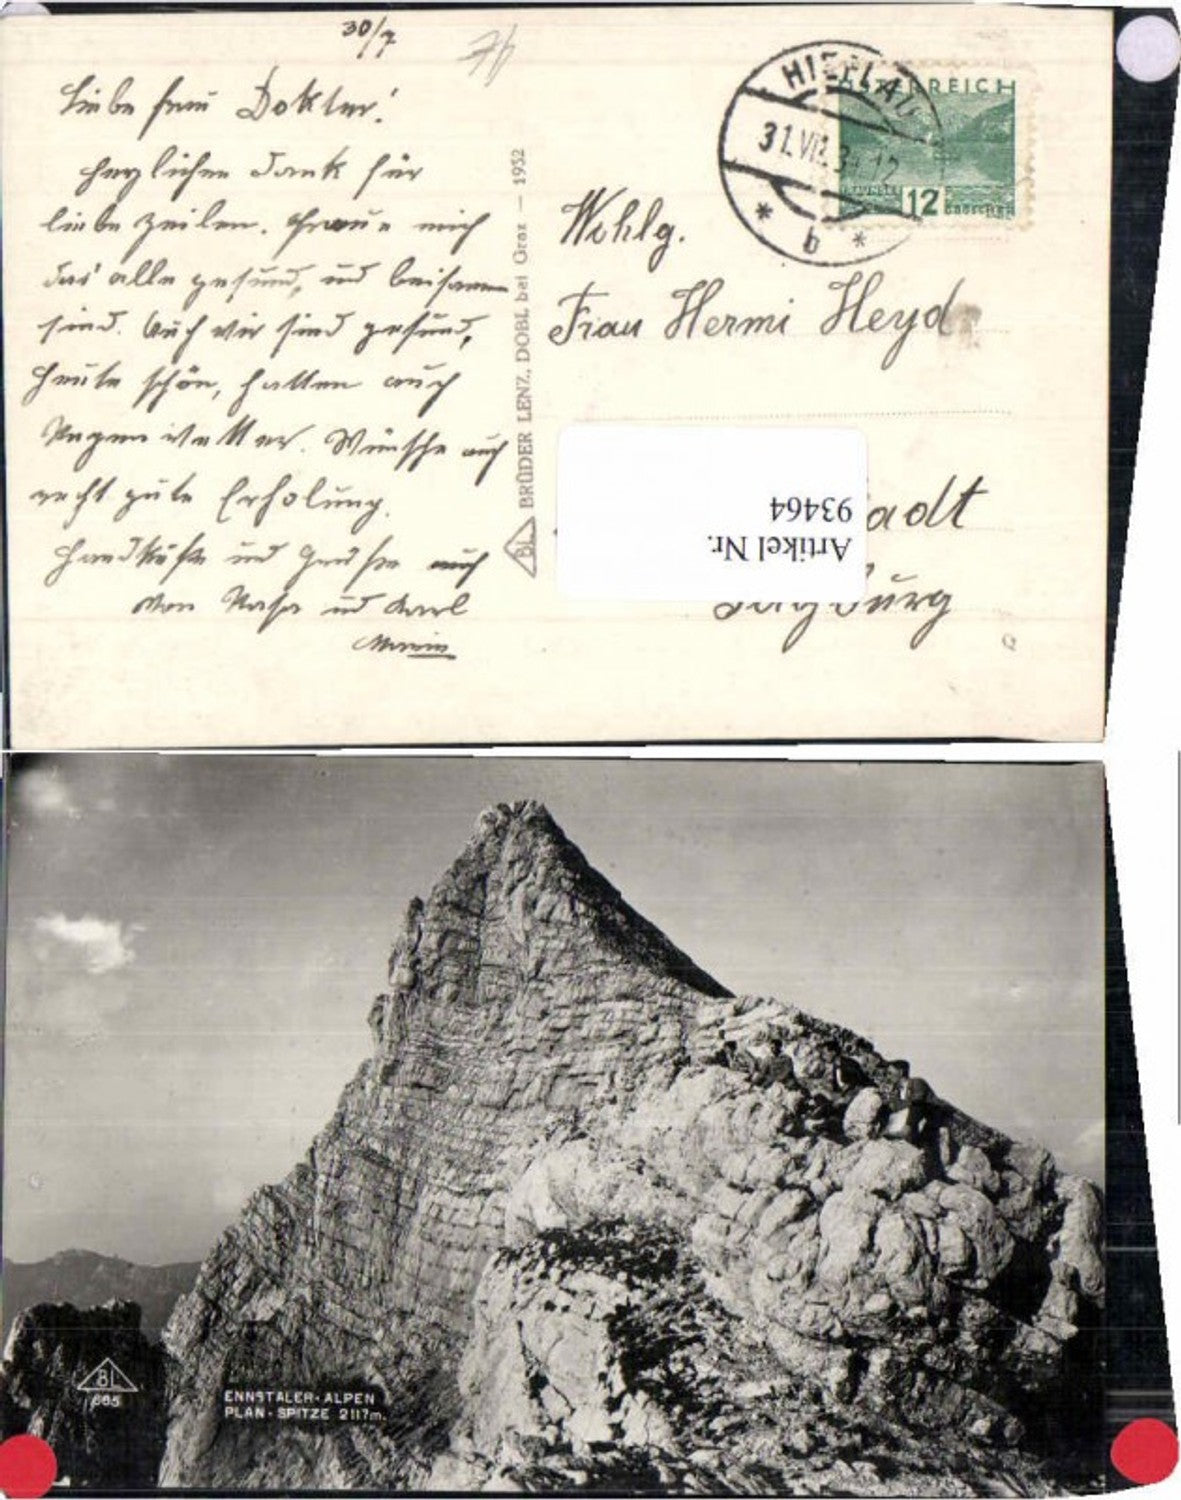 30/7
Liebe Frau Doktor!
Herzlichen Dank für
liebe Zeilen. Freue mich
das alle gesund, und beisammen
sind. Auch wir sind gesund,
heute schön, hatten auch
Regenwetter. Wünsche auch
recht gute Erholung.
Handküsse und Grüsse auch
von und Karl
BL BRÜDER LENZ, DOBL bei Graz — 1932
HIEFLAU
31.VII.34 12
* b *
ÖSTERREICH
12
Wohlg.
Frau Hermi Heyd
adt
burg
Artikel Nr.
93464
BL
ENNSTALER-ALPEN
PLAN-SPITZE 2117m.